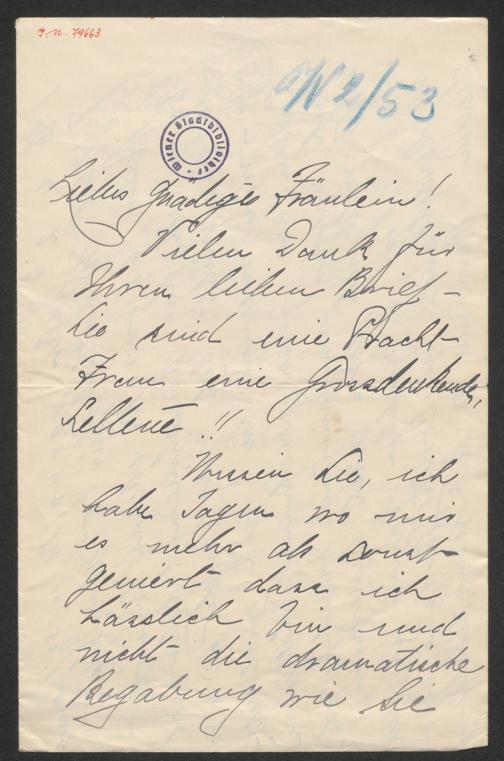 J. N. 79663
W 2/53
Wiener Stadtbibliothek
Liebes gnädiges Fräulein!
Vielen Dank für
Ihren lieben Brief –
Sie sind eine Pracht-
Frau eine Grossdenkende,
Seltene!!
Wissen Sie, ich
habe Tagen wo mir
es mehr als sonst
geniert dass ich
hässlich bin und
nicht die dramatische
Begabung wie Sie